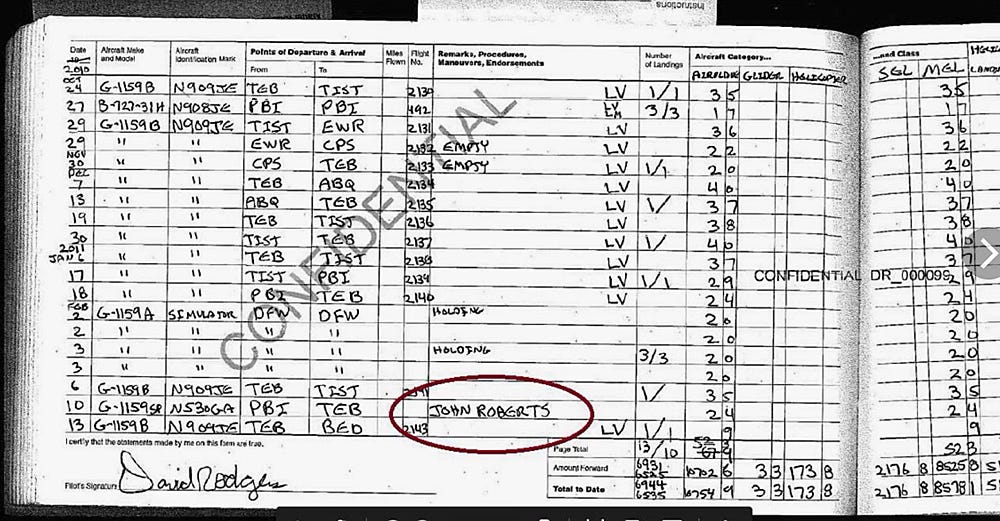 Instructions
Date Aircraft Make and Model Aircraft Identification Mark Points of Departure & Arrival From To Miles Flown Flight No. Remarks, Procedures, Maneuvers, Endorsements Number of Landings Aircraft Category...
...and Class
2010 AIRPLANE GLIDER HELICOPTER SEL MEL
OCT 24 G-1159B N909JE TEB TIST 2130 LV 1/1 3 5 35
27 B-727-31H N908JE PBI PBI 492 LM 3/3 1 7 17
29 G-1159B N909JE TIST EWR 2131 LV 3 6 36
29 " " EWR CPS 2132 EMPTY LV 2 2 22
NOV 30 " " CPS TEB 2133 EMPTY LV 1/1 2 0 20
DEC 7 " " TEB ABQ 2134 LV 4 0 40
13 " " ABQ TEB 2135 LV 1/ 3 7 37
19 " " TEB TIST 2136 LV 3 8 38
30 " " TIST TEB 2137 LV 1/ 4 0 40
2011 JAN 6 " " TEB TIST 2138 LV 3 7 37
17 " " TIST PBI 2139 LV 1/1 2 9 29
CONFIDENTIAL DR_000095
18 " " PBI TEB 2140 LV 2 4 24
FEB 2 G-1159A SIMULATOR DFW DFW HOLDING 2 0 20
2 " " " " 2 0 20
3 " " " " HOLDING 3/3 2 0 20
3 " " " " 2 0 20
6 G-1159B N909JE TEB TIST 1/ 3 5 35
10 G-1159SB N530GA PBI TEB JOHN ROBERTS 2 4 24
13 G-1159B N909JE TEB BED 2143 LV 1/1 9 9
CONFIDENTIAL
I certify that the statements made by me on this form are true.
Page Total 13/10 52 3
Amount Forward 6931 6525 10702 6 3 3 173 8 2176 8 8525 8
Pilot's Signature David Rodgers
Total to Date 6944 6535 10754 9 3 3 173 8 2176 8 8578 1